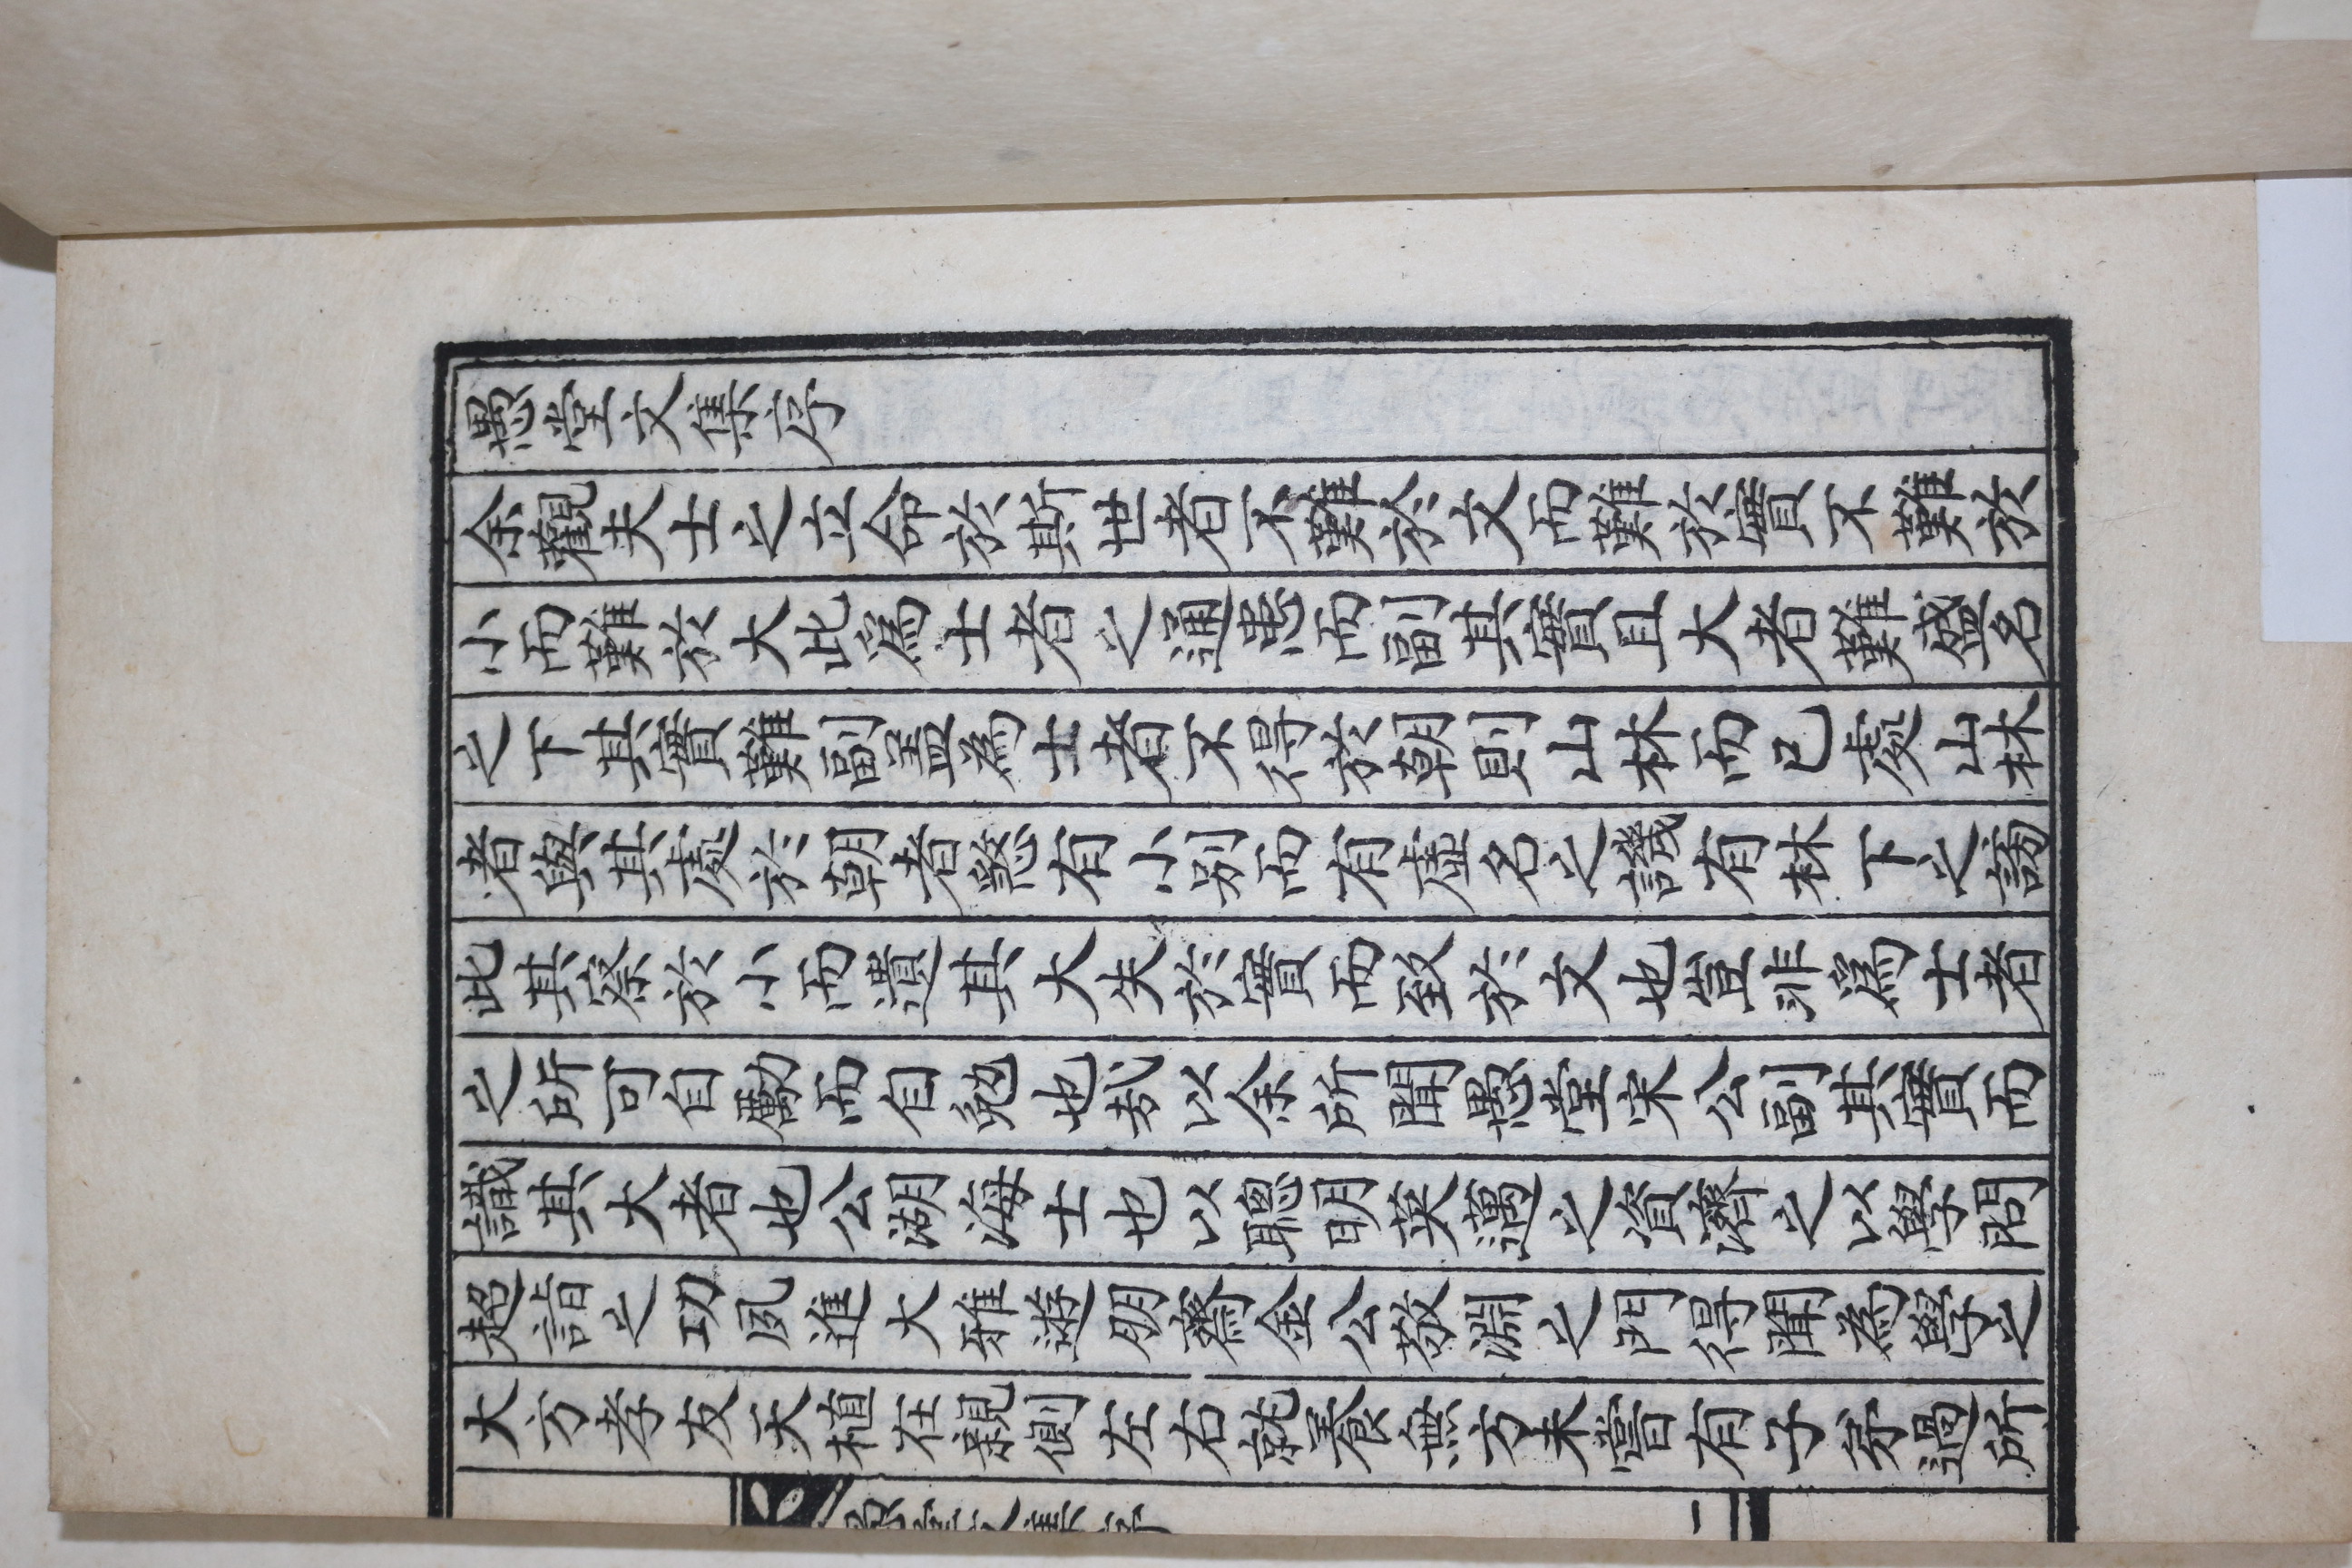 愚堂文集序
余觀夫士之立命於斯世者不難於文而難於實不難於
小而難於大此爲士者之通患而副其實且大者難盛名
之下其實難副盖為士者不得於朝則山林而已處山林
者與其處於朝者愍有小别而有虛名之譏有林下之謗
此其察於小而遺其大失於實而致於文也豈非爲士者
之所可自勵而自勉也㢤以余所聞愚堂宋公副其實而
識其大者也公湖海士也以聰明英邁之資濟之以學問
超詣之功夙進大雅遊朋齋金公敬淵之門得聞為學之
大方孝友天植在親側左右就養無方未嘗有子弟過所
愚堂文集序
二